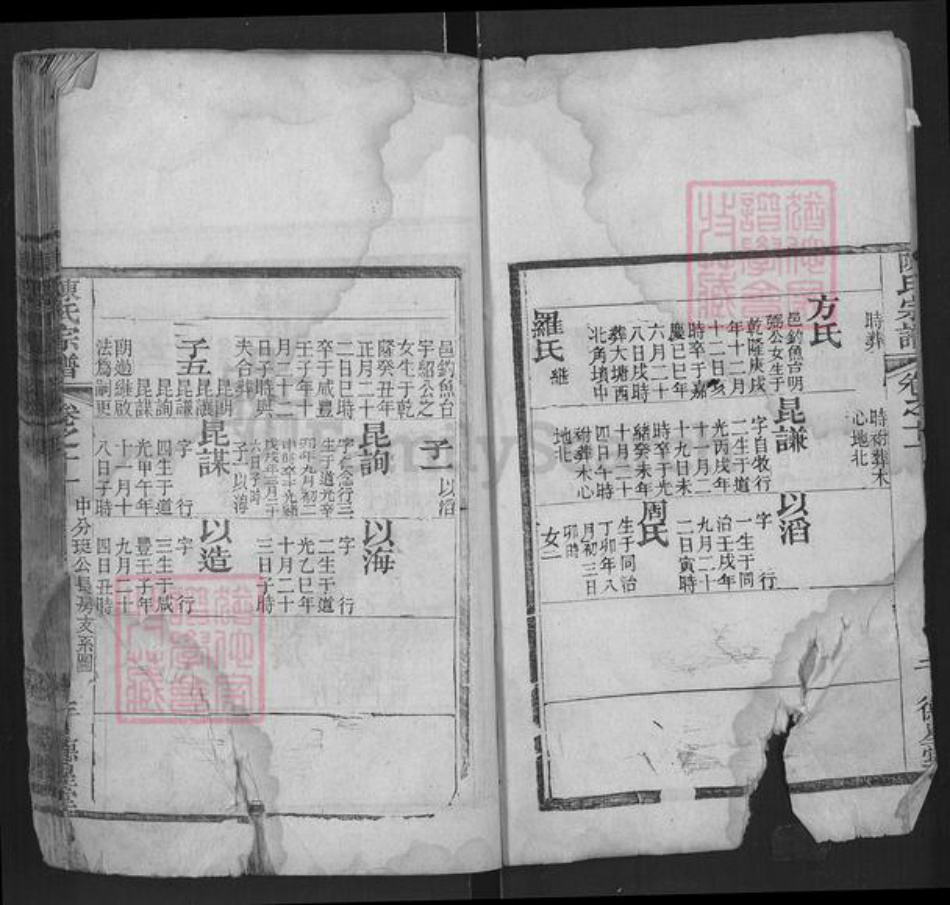 陳氏宗譜
卷之十一
時葬
方氏
邑釣魚台明
瑞公女生于
乾隆庚戌
年十二月
十二日亥
時卒于嘉
慶己巳年
六月二十
八日戌時
葬大塘西
北角墳中
羅氏
繼
時祔葬木
心地北
昆謙
字自牧行
二生于道
光丙戌年
十月二
十九日未
時卒于光
緒癸未年
十月二十
四日午時
祔葬木心
地北
以滔
字 行
一生于同
治壬戌年
九月二十
二日寅時
周氏
生于同治
丁卯年八
月初三日
卯時
女二
邑釣魚台
宇紹公之
女生于乾
隆癸丑年
正月二十
二日巳時
卒于咸豐
壬子年十
月二十二
日子時與
夫合葬
子五
昆朋
昆讓
昆謙
昆詢
昆謀
朋過繼啟
法爲嗣更
子一
以滔
昆詢
行三
生于道光辛
卯年九月初二
戌年三月二十
六日子時
子一以海
昆謀
字 行
四生于道
光甲午年
十一月十
八日子時
以海
字 行
二生于道
光乙巳年
十月二十
三日子時
以造
字 行
三生于咸
豐壬子年
九月二十
四日丑時
中分珽公長房支系圖
陳氏宗譜
卷之十一